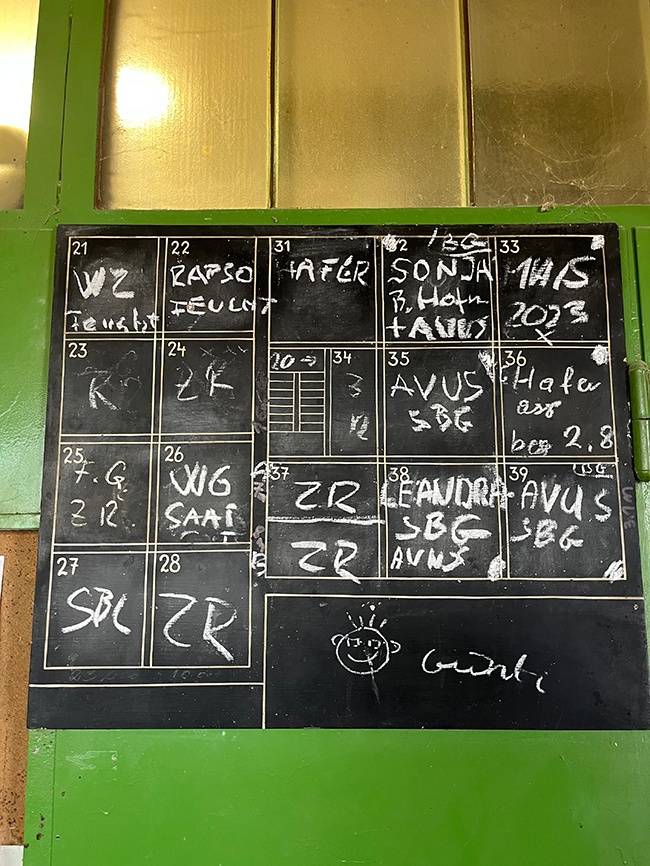 21
WZ
Feucht
22
RAPSO
FEUCHT
31
HAFER
32 SBG
SONJA
+ AVUS
33
2023
X
23
R
24
ZR
20 →
34
3
35
AVUS
SBG
36
Hafer
2.8
25
F.G
ZR
26
WG
SAAT
37
ZR
ZR
38
LEANDRA
SBG
AVUS
39
AVUS
SBG
27
SBG
28
ZR